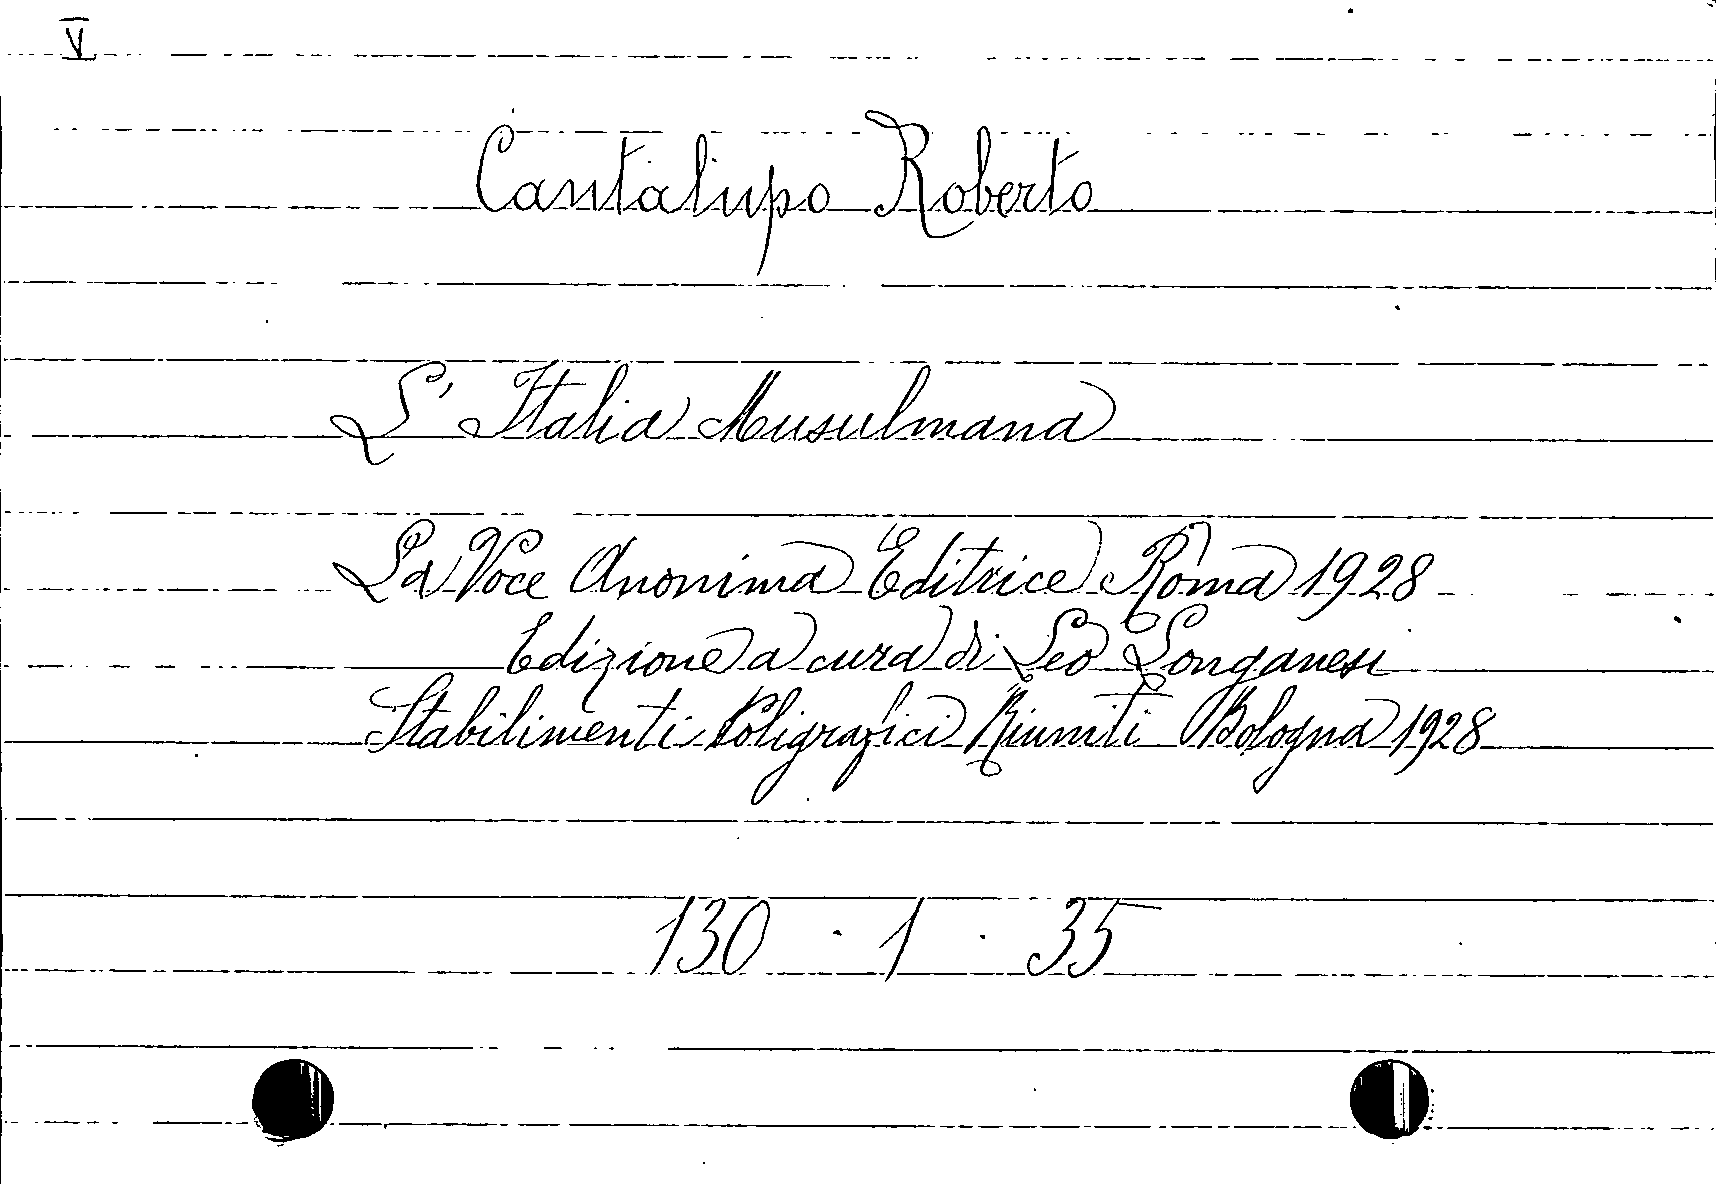 V
Cantalupo Roberto
L' Italia Musulmana
La Voce Anonima Editrice Roma 1928
Edizione a cura di Leo Longanesi
Stabilimenti Poligrafici Riuniti Bologna 1928
130 · 1 · 35